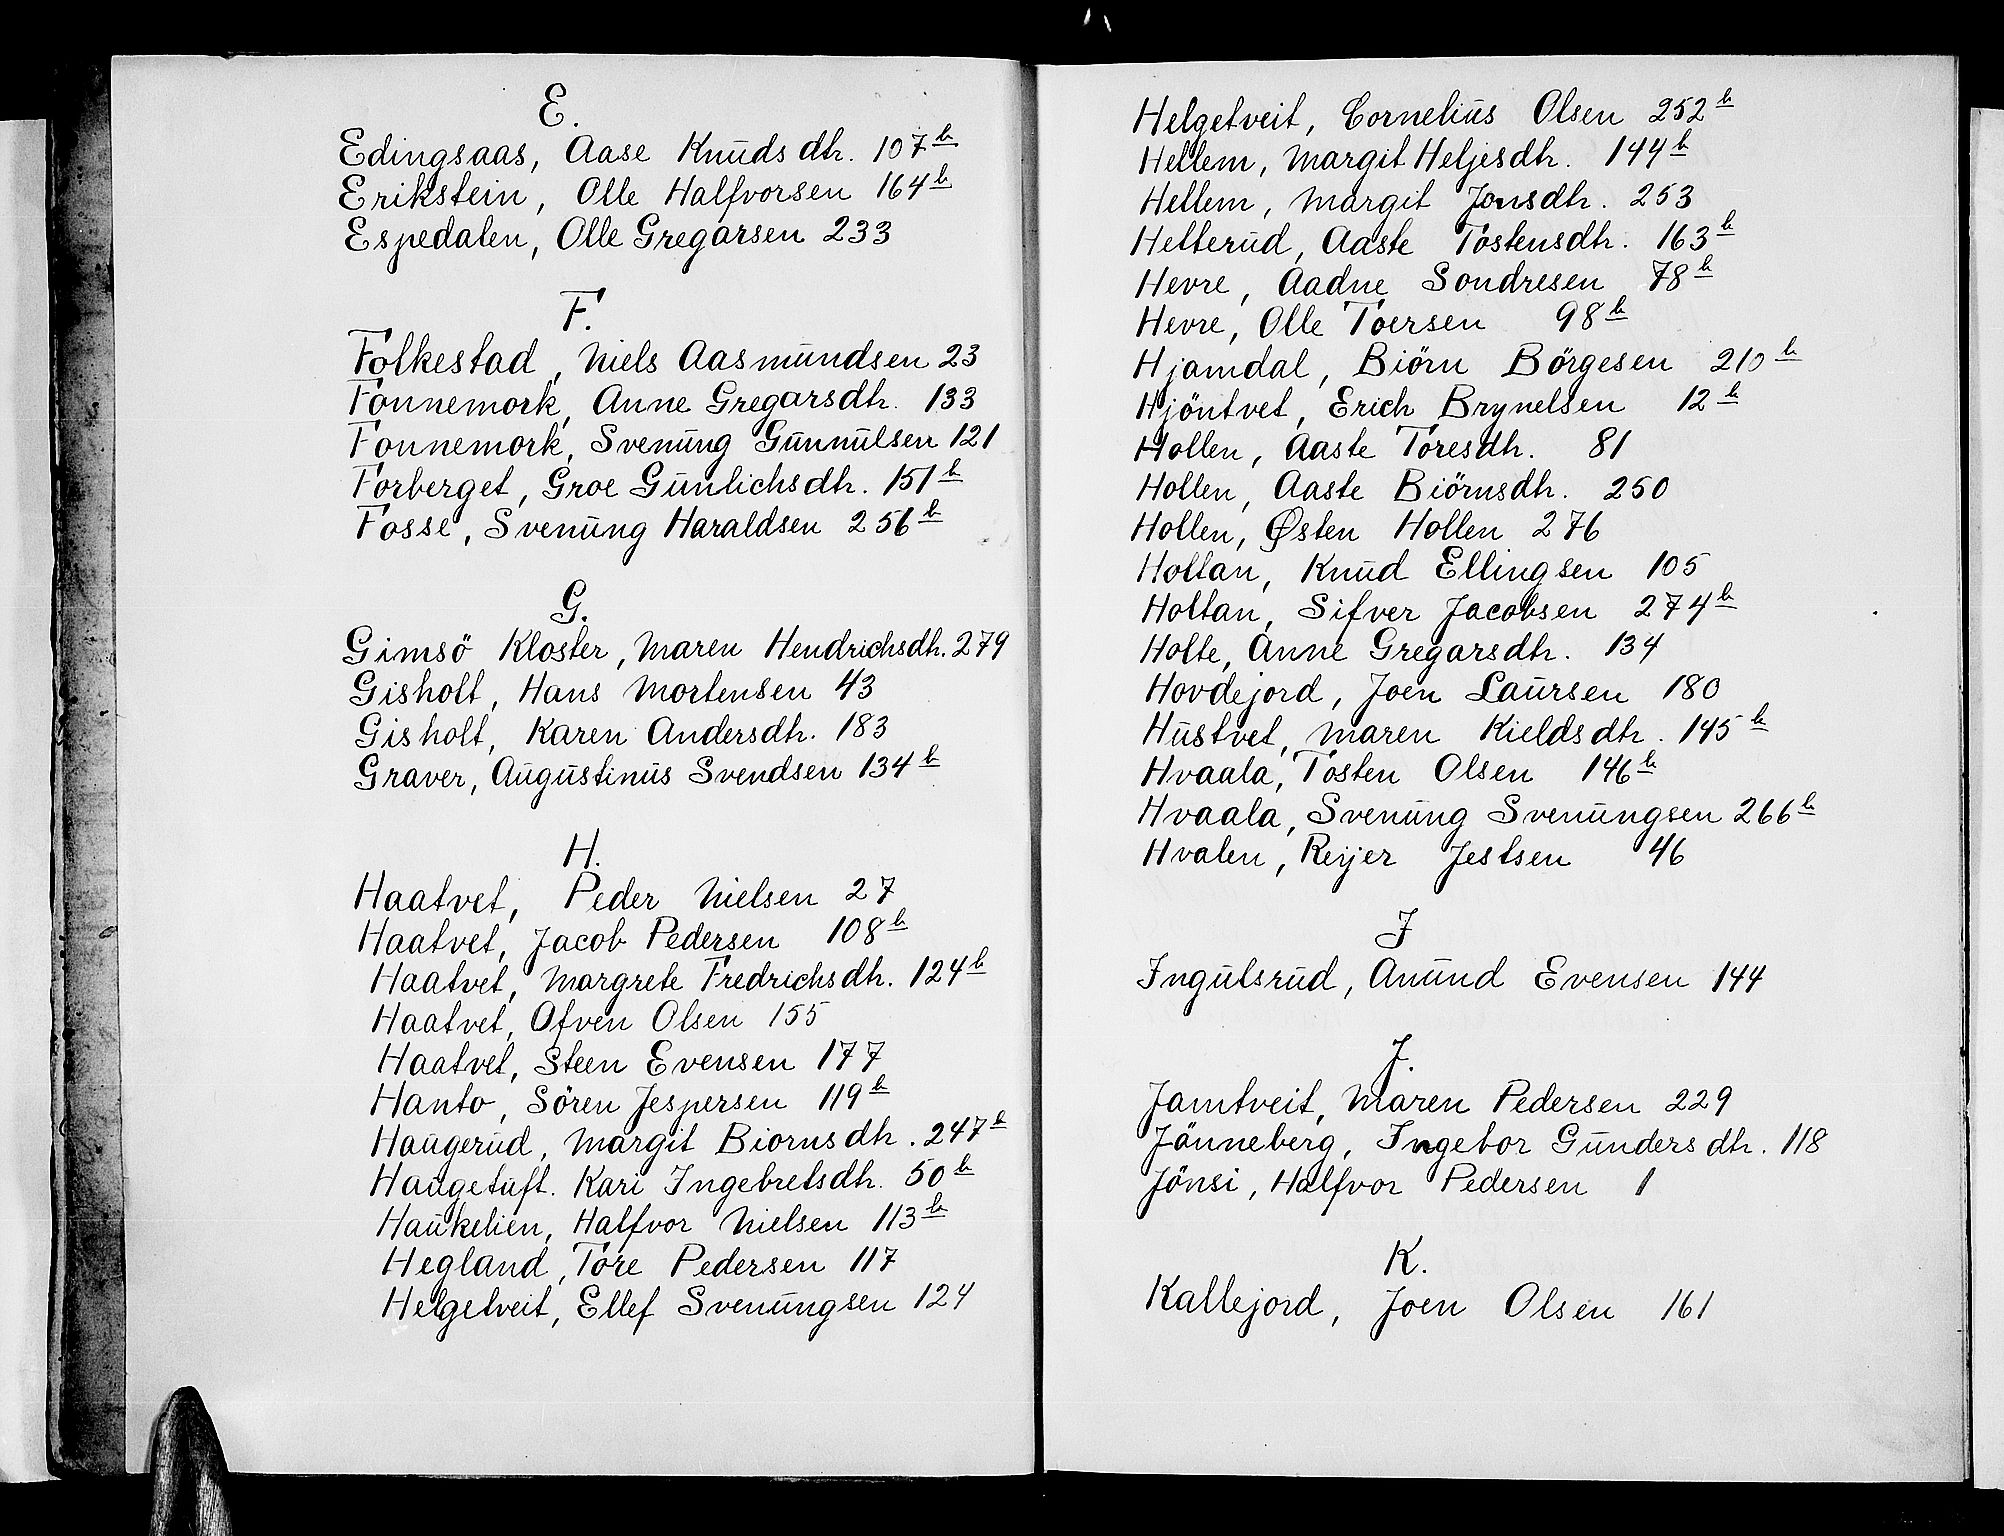 E.
Edingsaas, Aase Knudsdtr. 107b
Erikstein, Olle Halfvorsen 164b
Espedalen, Olle Gregarsen 233
F.
Folkestad, Niels Aasmundsen 23
Fonnemork, Anne Gregarsdtr. 133
Fonnemork, Svenung Gunnulsen 121
Forberget, Groe Gunlichsdtr. 151b
Fosse, Svenung Haraldsen 256b
G.
Gimsö Kloster, Maren Hendrichsdtr. 279
Gisholt, Hans Mortensen 43
Gisholt, Karen Andersdtr. 183
Graver, Augustinus Svendsen 134b
H.
Haatvet, Peder Nielsen 27
Haatvet, Jacob Pedersen 108b
Haatvet, Margrete Fredrichsdtr. 124b
Haatvet, Ofven Olsen 155
Haatvet, Steen Evensen 177
Hanto, Sören Jespersen 119b
Haugerud, Margit Biornsdtr. 247b
Haugetuft. Kari Ingebretsdtr. 50b
Haukelien, Halfvor Nielsen 113b
Hegland, Tore Pedersen 117
Helgetveit, Ellef Svenungsen 124
Helgetveit, Cornelius Olsen 252b
Hellem, Margit Heljesdtr. 144b
Hellem, Margit Jonsdtr. 253
Helterud, Aaste Tostensdtr. 163b
Hevre, Aadne Sondresen 78b
Hevre, Olle Toersen 98b
Hjamdal, Biörn Börgesen 210b
Hjöntvet, Erich Brynelsen 12b
Hollen, Aaste Toresdtr. 81
Hollen, Aaste Biörnsdtr. 250
Hollen, Østen Hollen 276
Holtan, Knud Ellingsen 105
Holtan, Sifver Jacobsen 274b
Holte, Anne Gregarsdtr. 134
Hovdejord, Joen Laursen 180
Hustvet, Maren Kieldsdtr. 145b
Hvaala, Tosten Olsen 146b
Hvaala, Svenung Svenungsen 266b
Hvalen, Reijer Jestsen 46
I
Ingulsrud, Anund Evensen 144
J.
Jamtveit, Maren Pedersen 229
Jönneberg, Ingebor Gundersdtr. 118
Jönsi, Halfvor Pedersen 1
K.
Kallejord, Joen Olsen 161